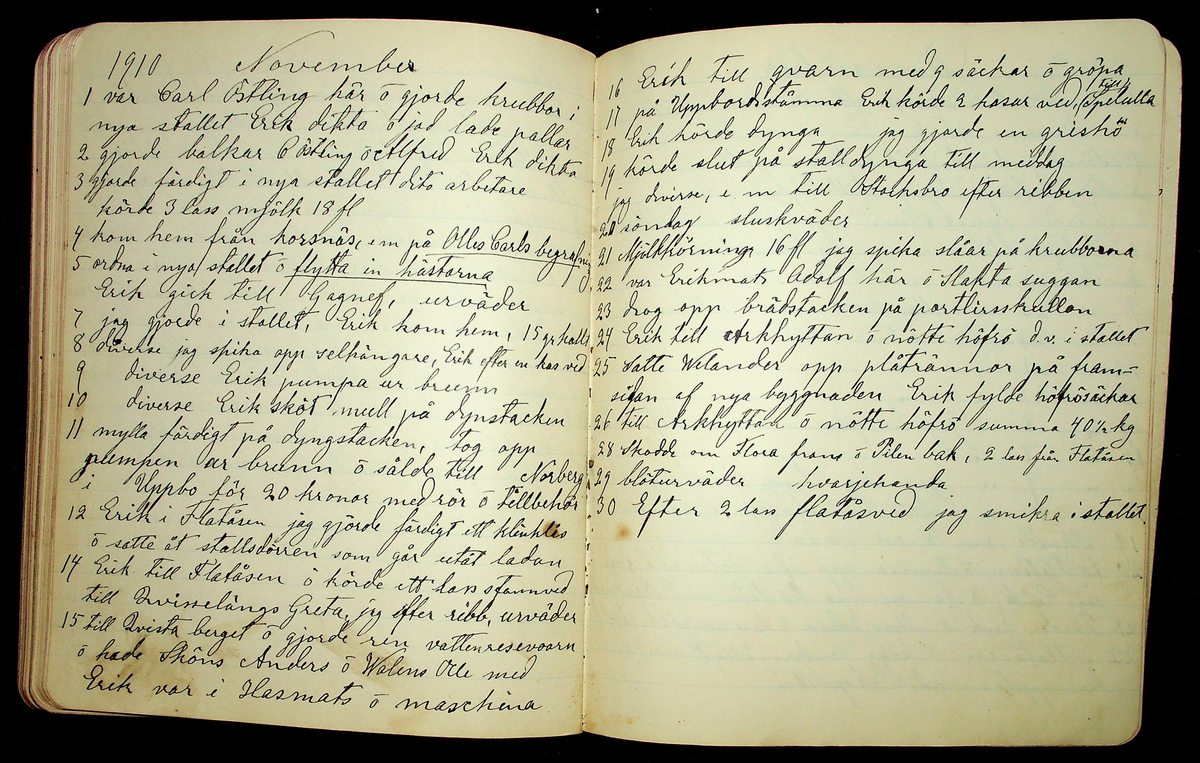 1910 November
1 var Carl Östling här ō gjorde krubbor i
nya stallet Erik dikta ō jad lade pallar
2 gjorde balkar C Östling ō Alfred Erik dikta
3 gjorde färdigt i nya stallet dito arbetare
körde 3 lass mjölk 18 fl
4 kom hem från korsnäs, em på Olles Carls begrafni
5 ordna i nya stallet ō flytta in hästarna
Erik gick till Gagnef, urväder
7 jag gjorde i stallet, Erik kom hem, 15 gr kallt
8 diverse jag spika opp selhängare, Erik efter en kas ved
9 diverse Erik pumpa ur brunn
10 diverse Erik sköt mull på dynstacken
11 mylla färdigt på dyngstacken, tog opp
pumpen ur brunn ō sålde till Norberg
i Uppbo för 20 kronor med rör ō tillbehör
12 Erik i Flatåsen jag gjörde färdigt ett
ō satte åt stallsdörren som går utåt ladan
14 Erik till Flatåsen ō körde ett lass stamved
till Greta, jag efter ribb, urväder
15 till berget ō gjorde ren vattenresevoarn
ō hade Sköns Anders ō Walens Olle med
Erik var i Hasmats ō maschina
16 Erik till qvarn med 9 säckar ō gröpa
17 på Uppbordstämma Erik körde 2 kasar ved, till Spikulla
18 Erik körde dynga jag gjorde en grishö
19 körde slut på stalldynga till meddag
jag diverse, e m till Stocksbro efter ribben
20 söndag sluskväder
21 Mjölkkörning 16 fl jag spika slåar på krubborna
22 var Erikmats Adolf här ō Slakta suggan
23 drog opp brädstacken på portlirsskullen
24 Erik till Arkhyttan ō nötte höfrö d. v. i stallet
25 Satte Welander opp plåtrännor på fram=
sidan af nya byggnaden Erik fylde höfrösäckar
26 till Arkhyttan ō nötte höfrö summa 40½ kg
28 Skodde om Flora frams ō Pilen bak, 2 lass från Flatåsen
29 blöturväder hvarjehanda
30 Efter 2 lass flatåsved jag smikra i stallet.